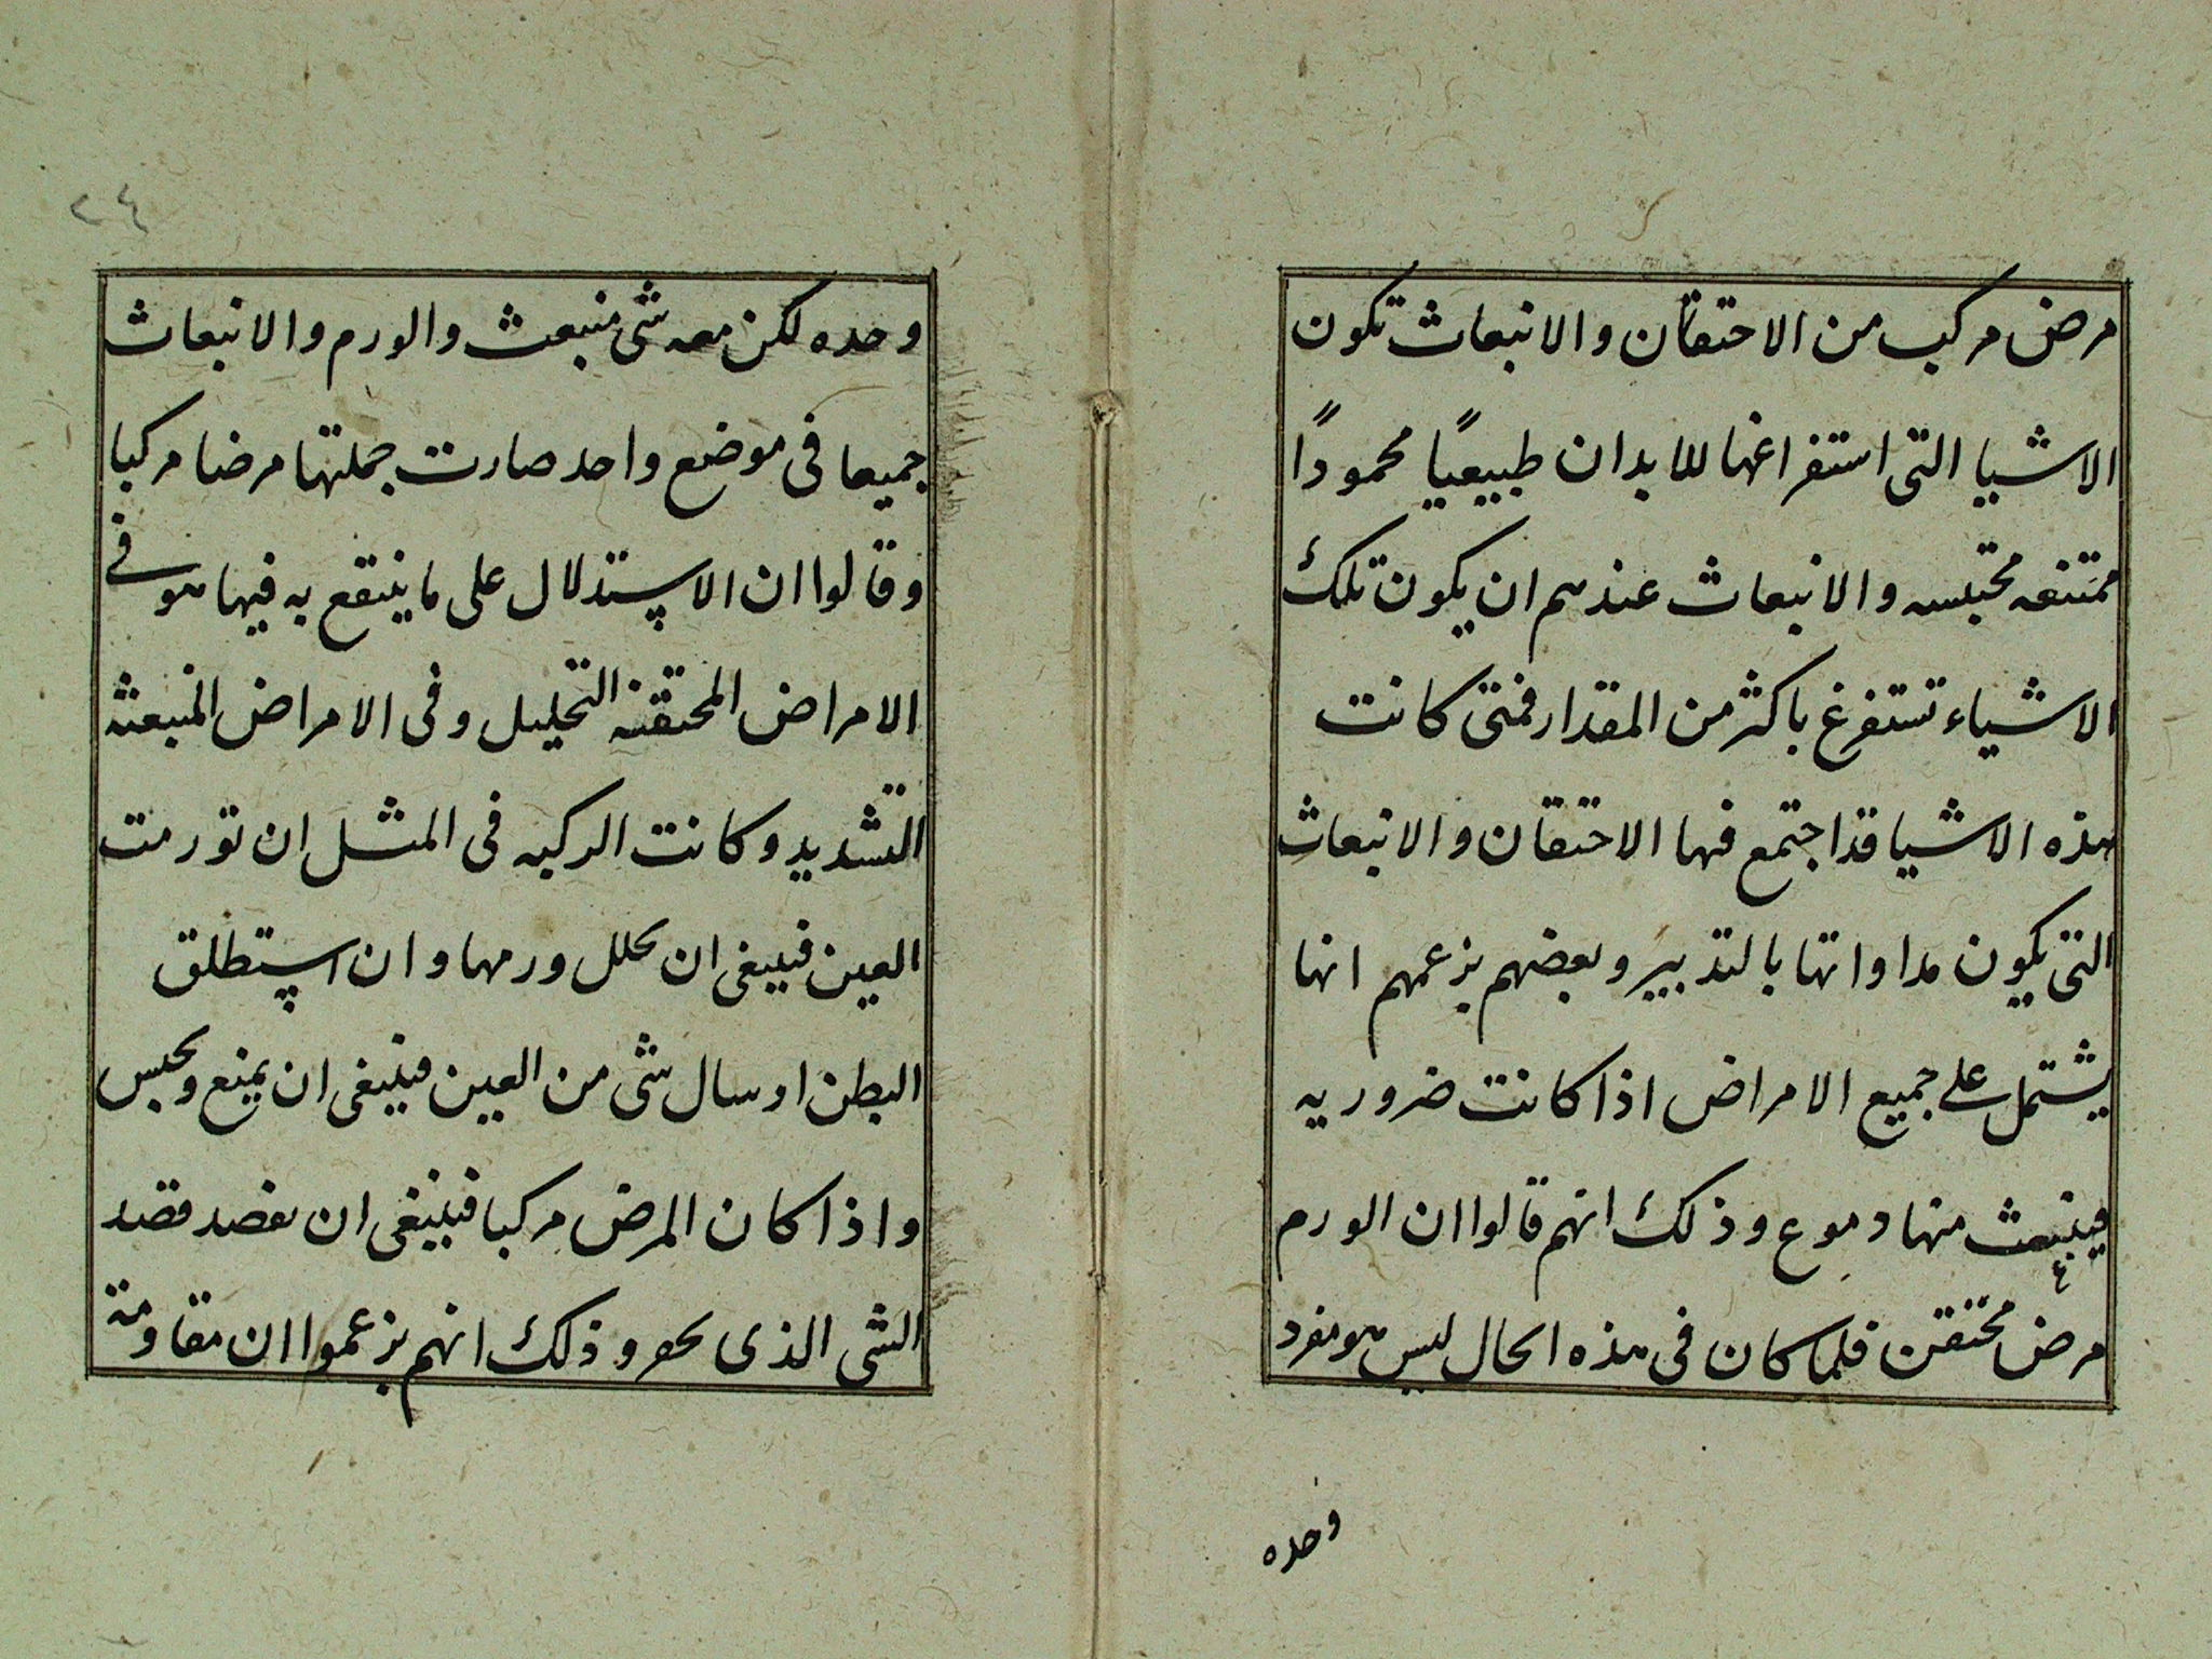 مرض مركب من الاحتقان والانبعاث تكون
الاشيا التى استفراغها للابدان طبيعيًا محمودًا
ممتنعه محتبسه والانبعاث عندهم ان يكون تلك
الاشياء تستفرغ باكثر من المقدار فمتى كانت
هذه الاشيا قد اجتمع فيها الاحتقان والانبعاث
التى يكون مداواتها بالتدبير وبعضهم يزعمهم انها
يشتمل على جميع الامراض اذا كانت ضروريه
فينبعث منها دموع وذلك انهم قالوا ان الورم
مرض محتقن فلما كان فى هذه الحال ليس هو مفرد
وحده
٢٤
وحده لكن معه شى منبعث والورم والانبعاث
جميعا فى موضع واحد صارت جملتها مرضا مركبا
وقالوا ان الاستدلال على ما ينتفع به فيها هو فى
الامراض المحتقنة التحليل وفى الامراض المنبعثه
التشديد وكانت الركبه فى المثل ان تورمت
العين فينبغى ان يحلل ورمها وان استطلق
البطن او سال شى من العين فينبغى ان يمنع ويحبس
واذا كان المرض مركبا فينبغى ان يقصد قصد
الشى الذى يحفر وذلك انهم يزعموا ان مقاومة